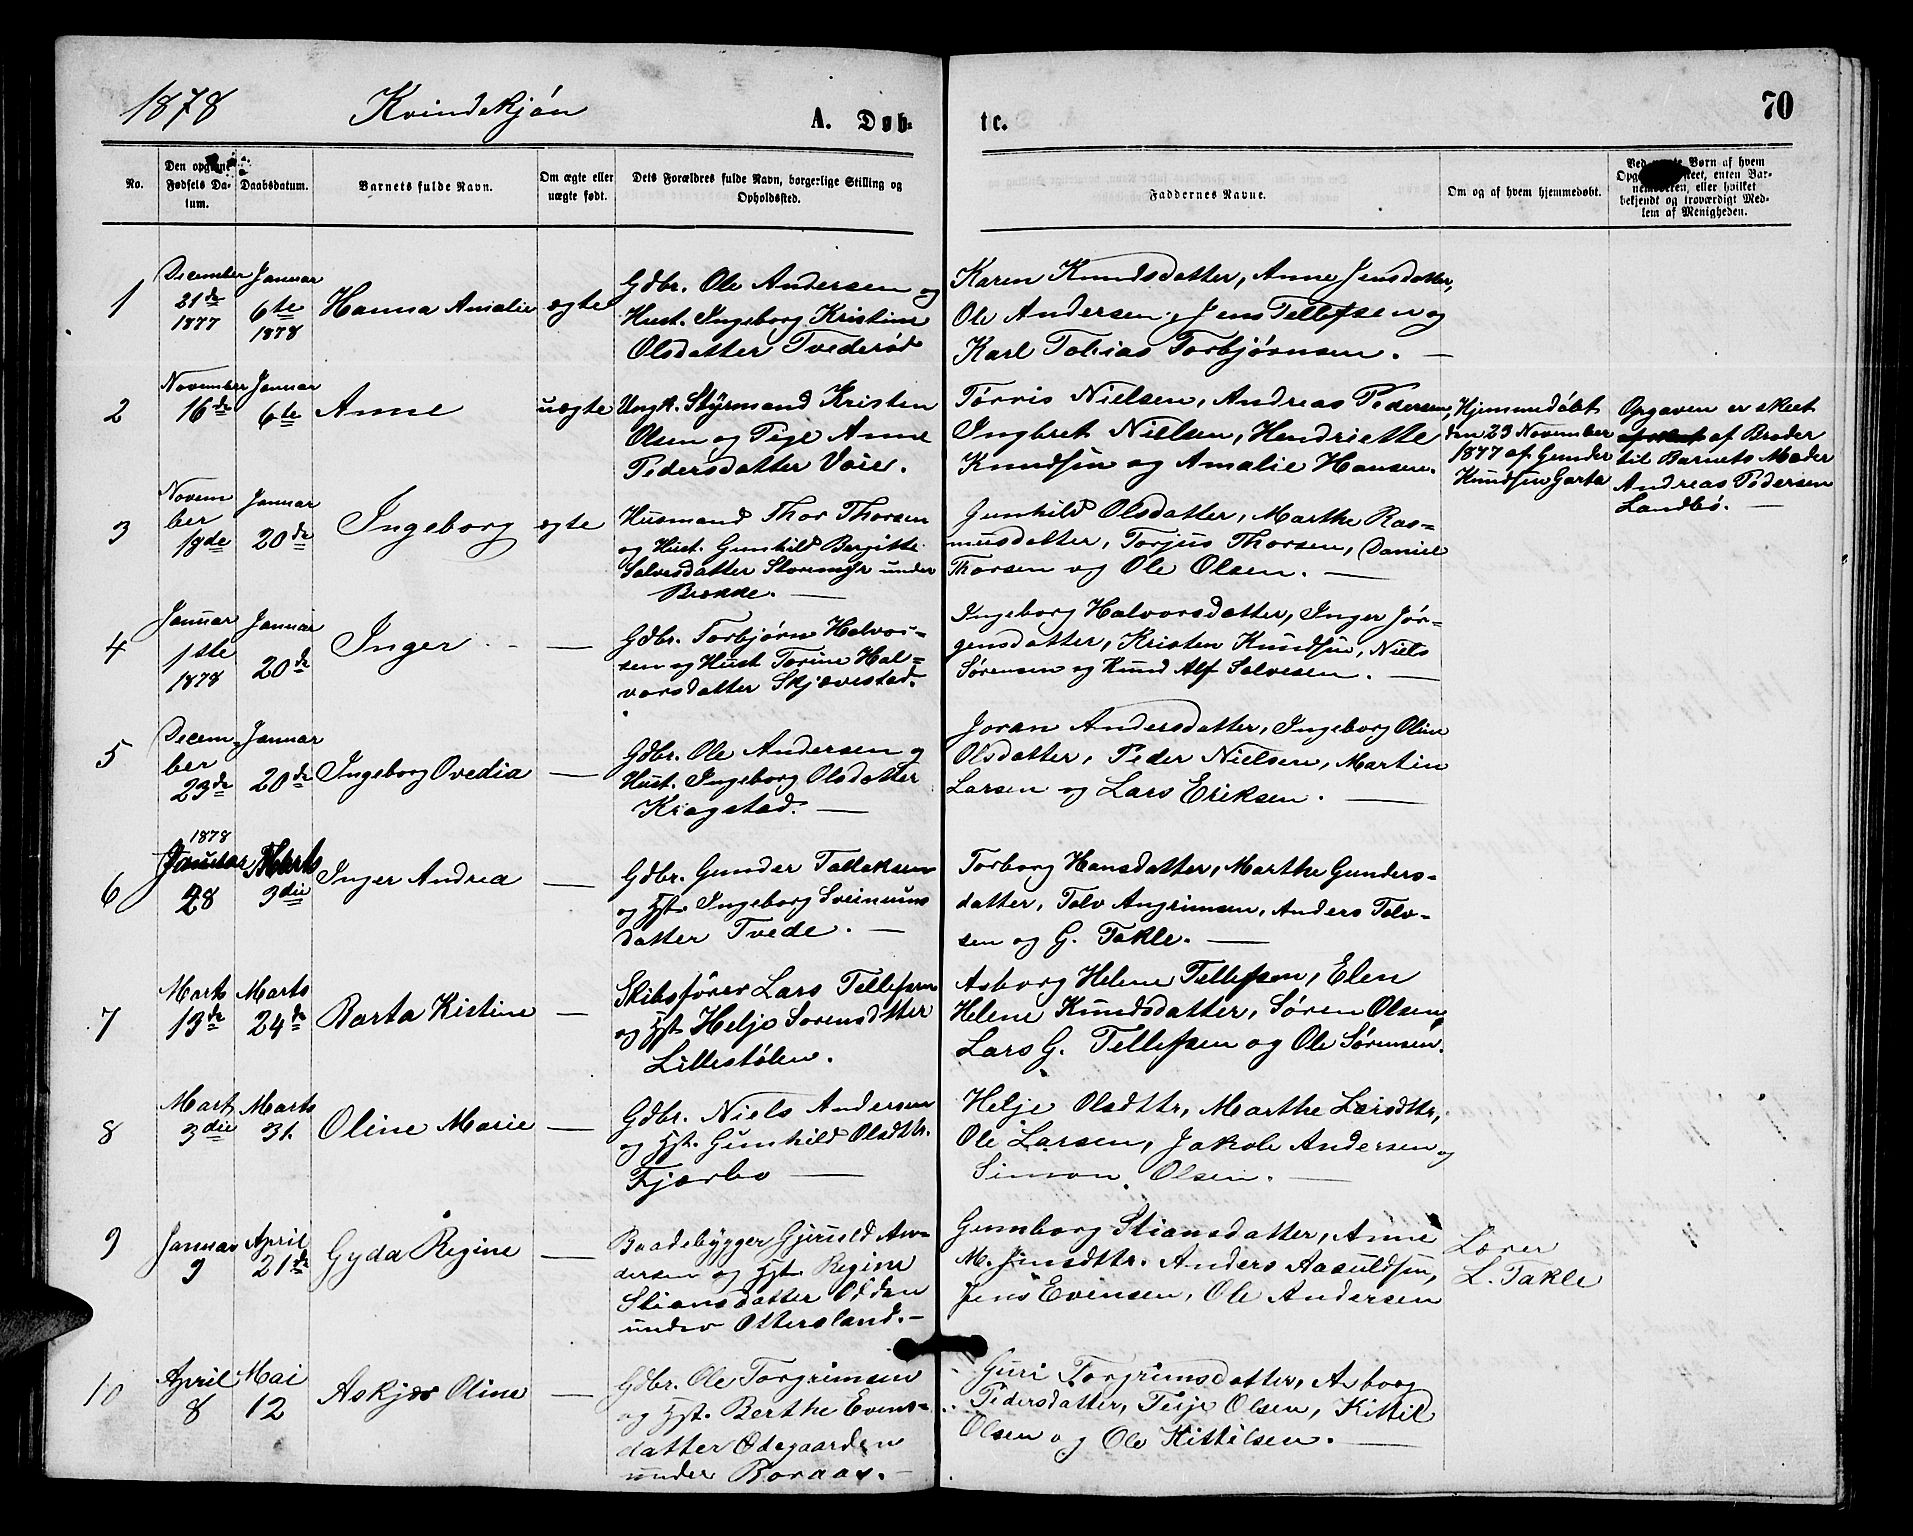 1878 Kvindekjøn A. Døb- te. 70
No.
Den opgivne Fødsels Datum.
Daabsdatum.
Barnets fulde Navn.
Om ægte eller uægte født.
Dets Forældres fulde Navn, borgerlige Stilling og Opholdssted.
Faddernes Navne.
Om og af hvem hjemmedøbt.
Ved uægte Børn af hvem
Opgaven er skeet, enten Bar-
nemoderen, eller hvilket
bekjendt og troværdigt Med-
lem af Menigheden.
1
December
21de
1877
Januar
6te
1878
Hanna Amalie
ægte
Gdbr. Ole Andersen og
Hust. Ingeborg Kristine
Olsdatter Tvederød
Karen Knudsdatter, Anne Jensdatter,
Ole Andersen, Jens Tellefsen og
Karl Tobias Torbjørnsen. —
2
November
16de
Januar
6te
Anne
uægte
Ungk. Styrmand Kristen
Olsen og Pige Anne
Pedersdatter Voie.
Tørris Nielsen, Andreas Pedersen,
Ingbret Nielsen, Hendriette
Knudsen og Amalie Hansen.
Hjemmedøbt
den 23 November
1877 af Gunder
Knudsen Garta
Opgaven er skeet
af Broder
til Barnets Moder
Andreas Pedersen
Landbø. —
3
Novem
ber
18de
Januar
20de
Ingeborg
ægte
Husmand Thor Thorsen
og Hust. Gunhild Bergitte
Salvesdatter Storemyr under
Brekke. —
Gunhild Olsdatter, Marthe Ras-
musdatter, Torjus Thorsen, Daniel
Thorsen og Ole Olsen. —
4
Januar
1ste
1878
Januar
20de
Inger
—
Gdbr. Torbjørn Halvor-
sen og Hust Torine Hal-
vorsdatter Skjævestad.
Ingeborg Halvorsdatter, Inger Jør-
gensdatter, Kristen Knudsen, Niels
Sørensen og Knud Alf Salvesen. —
5
Decem-
ber
23de
Januar
20de
Ingeborg Ovedia
—
Gdbr. Ole Andersen og
Hust. Ingeborg Olsdatter
Kragstad. —
Joran Andersdatter, Ingeborg Oline
Olsdatter, Peder Nielsen, Martin
Larsen og Lars Eriksen. —
6
1878
Januar
28
Marts
3die
Inger Andrea
—
Gdbr. Gunder Tallaksen
og Hst. Ingeborg Sveinuns
datter Tvede. —
Torborg Hansdatter, Marthe Gunders-
datter, Tolv Angrimsen, Anders Tolv-
sen og G. Takle. —
7
Marts
13de
Marts
24de
Barta Kistine
—
Skibsfører Lars Tellefsen
og Hst. Helje Sørensdtter
Lillestølen.
Asborg Helene Tellefsen, Elen
Helene Knudsdatter, Søren Olsen,
Lars G. Tellefsen og Ole Sørensen.
8
Mart
3die
Marts
31.
Oline Marie
—
Gdbr. Niels Andersen
og Hst. Gunhild Olsdtr.
Fjærbo —
Helje Olsdttr, Marthe Larsdttr,
Ole Larsen, Jakob Andersen og
Simon Olsen. —
9
Januar
9
April
21de
Gyda Regine
—
Baadebygger Gjeruld An-
dersen og Hst. Regine
Stiansdatter Odden
under Ottersland. —
Gunborg Stiansdatter, Anne
M. Jensdttr. Anders Aasuldsen,
Jens Evensen, Ole Andersen
Lærer
L. Takle
10
April
8
Mai
12
Askjær Oline
—
Gdbr. Ole Torgrimsen
og Hst. Berthe Evens-
datter Ødegaarden
under Boraas. —
Guri Torgrimsdatter, Asborg
Pedersdatter, Terje Olsen, Kittil
Olsen og Ole Kittilsen. —